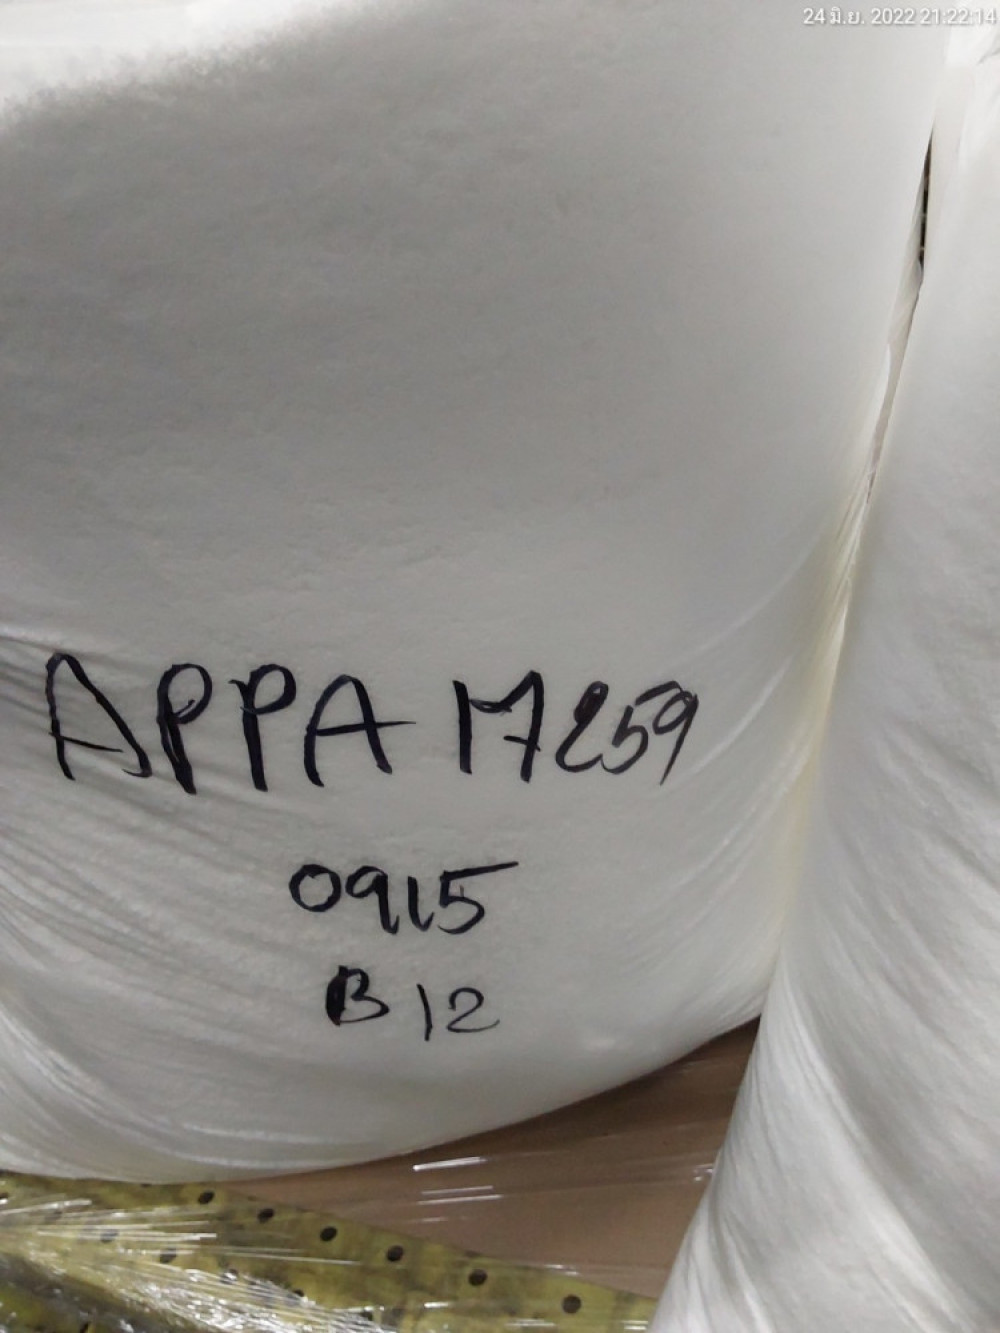 24 มิ.ย. 2022 21:22:14
APPA M259
0915
B 12